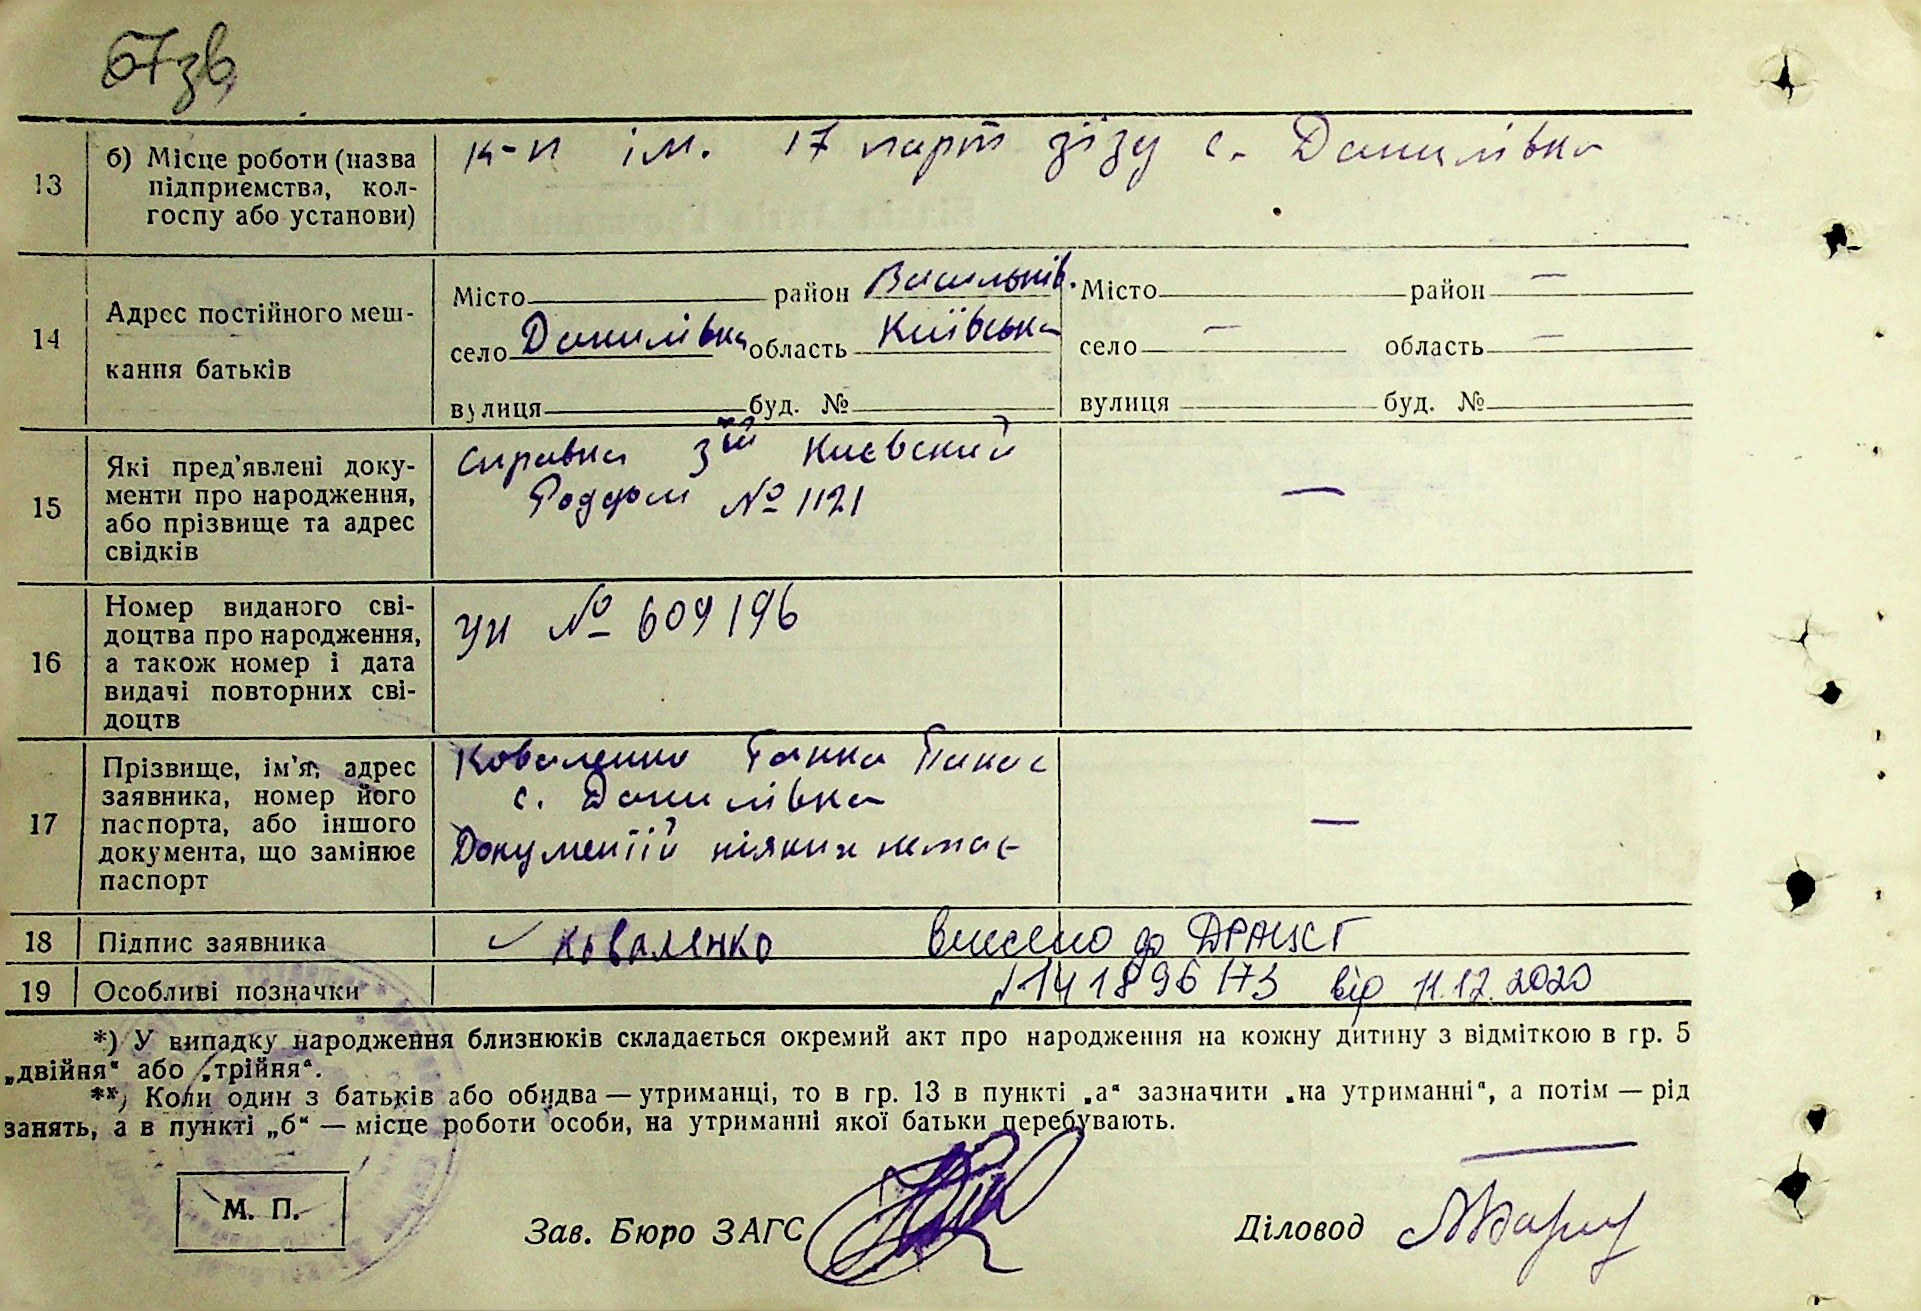 67зв
13
б) Місце роботи (назва
підприємства, кол-
госпу або установи)
к-п ім. 17 парт зїзду с. Данилівка
14
Адрес постійного меш-
кання батьків
Місто район Васильків. Місто район —
село Данилівка область Київська село — область —
вулиця буд. № вулиця буд. №
15
Які пред'явлені доку-
менти про народження,
або прізвище та адрес
свідків
справка 3ій Киевский
Роддом № 1121
—
16
Номер виданого сві-
доцтва про народження,
а також номер і дата
видачі повторних сві-
доцтв
№ 609196
17
Прізвище, ім'я, адрес
заявника, номер його
паспорта, або іншого
документа, що замінює
паспорт
Коваленко Ганна Панас
с. Данилівка
Документій ніяких немає
—
18 Підпис заявника
Коваленко
Внесено до ДРАЦСГ
19 Особливі позначки
№141896173 від 11.12.2020
*) У випадку народження близнюків складається окремий акт про народження на кожну дитину з відміткою в гр. 5
„двійня“ або „трійня“.
**) Коли один з батьків або обидва — утриманці, то в гр. 13 в пункті „а“ зазначити „на утриманні“, а потім — рід
занять, а в пункті „б“ — місце роботи особи, на утриманні якої батьки перебувають.
М. П.
Зав. Бюро ЗАГС
Діловод